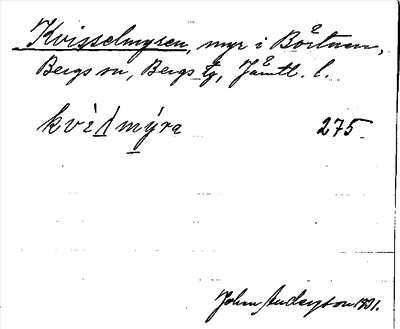 Kvisselmyren, myr i Börtnen,
Bergs sn, Bergs tg, Jämtl. l.
kvi mýra 275
John Anderson 1931.